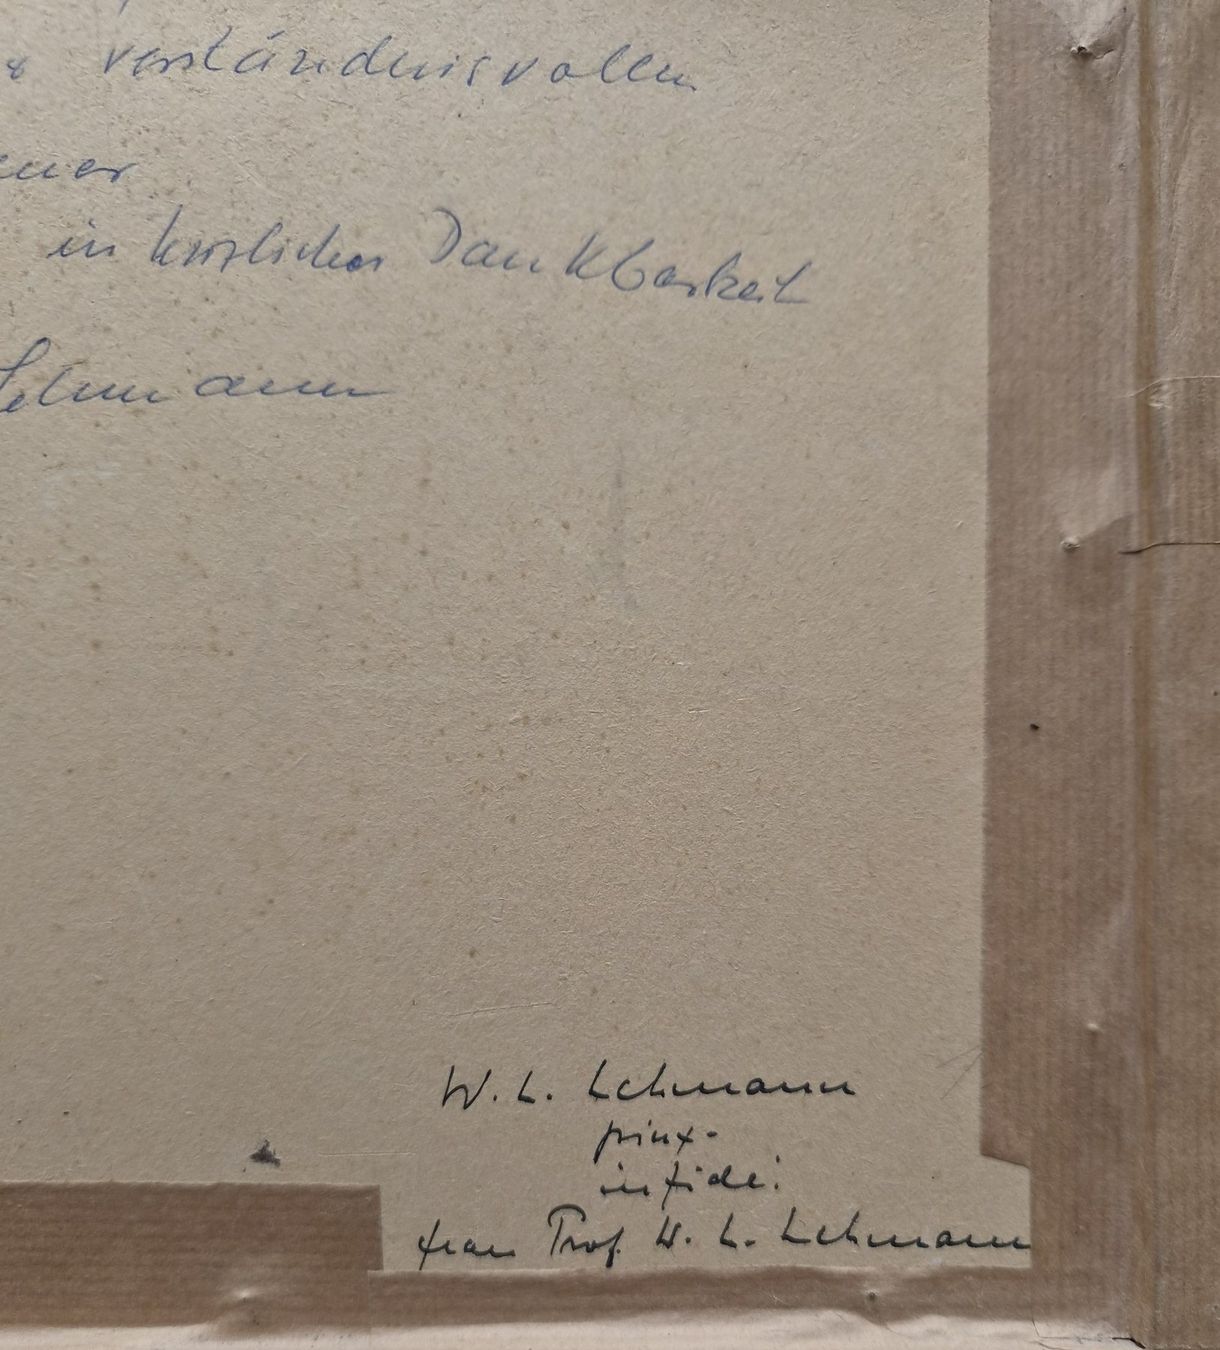 verständnisvollen
in herzlicher Dankbarkeit
Lehmann
W. L. Lehmann
pinx.
in fide:
frau Prof. W. L. Lehmann